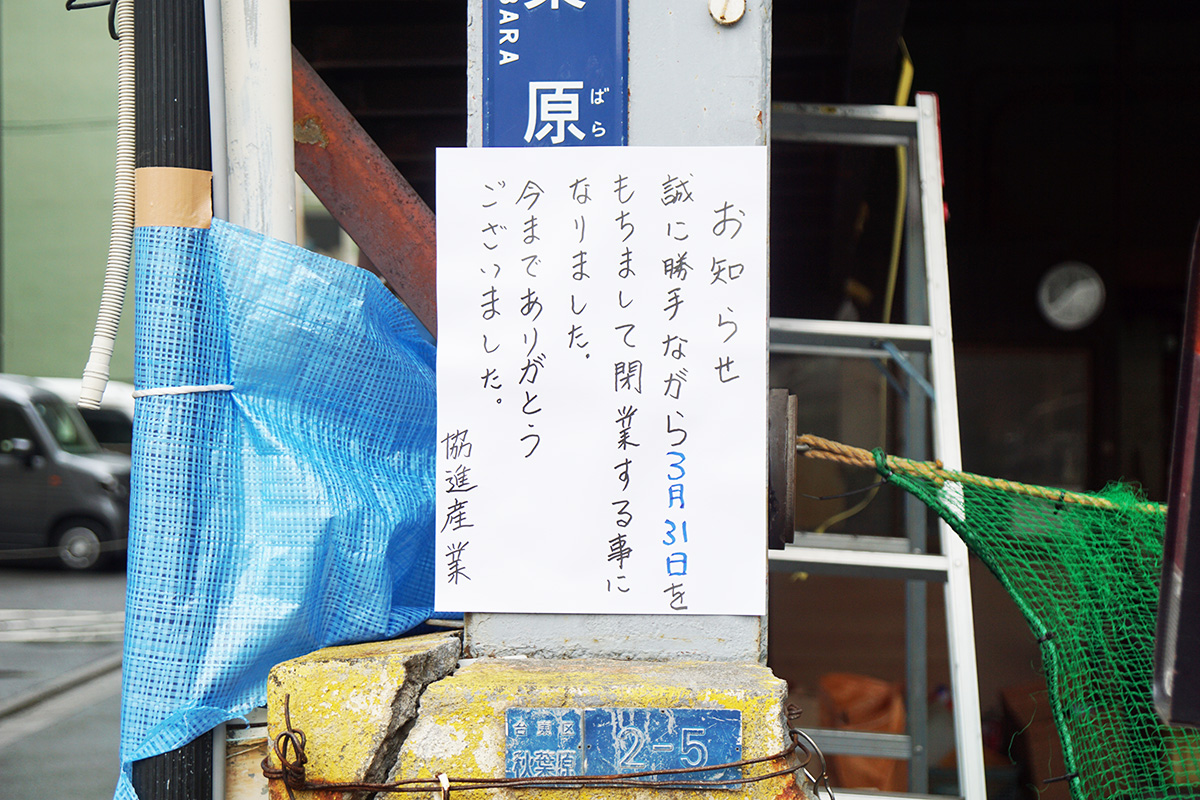 BARA
葉
原
ばら
お知らせ
誠に勝手ながら3月31日を
もちまして閉業する事に
なりました.
今までありがとう
ございました。
協進産業
台東区
秋葉原
2-5